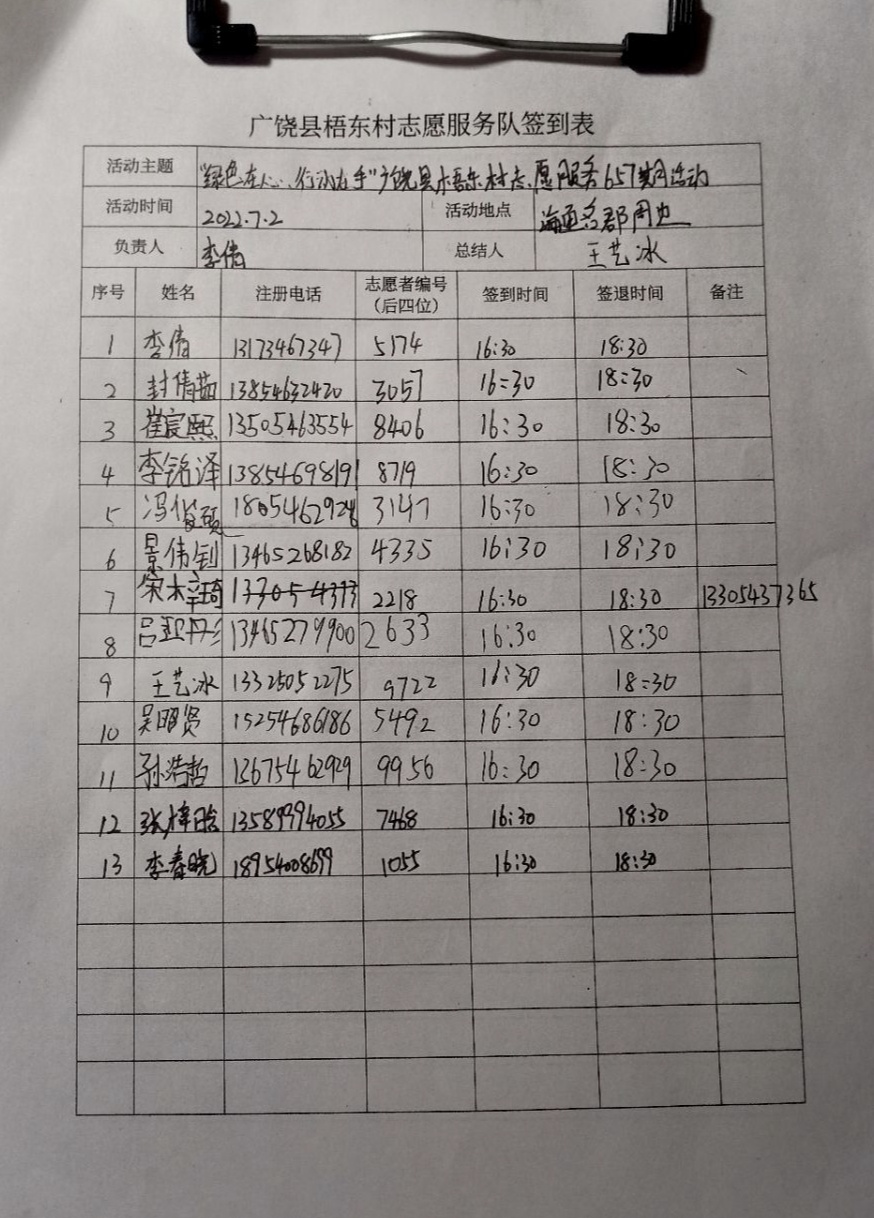 广饶县梧东村志愿服务队签到表
活动主题 "绿色在心、行动在手"广饶县梧东村志愿服务657期活动
活动时间 2022.7.2 活动地点 海通名郡周边
负责人 李倩 总结人 王艺冰
序号 姓名 注册电话 志愿者编号（后四位） 签到时间 签退时间 备注
1 李倩 13173467347 5174 16:30 18:30
2 封倩茹 13854632420 3057 16:30 18:30
3 崔宸熙 13505463554 8406 16:30 18:30
4 李铭泽 13854698191 8719 16:30 18:30
5 冯俊硕 3147 16:30 18:30
6 景伟钊 13465268182 4335 16:30 18:30
7 宋木辛琦 2218 16:30 18:30 13305437365
8 吕 13465279900 2633 16:30 18:30
9 王艺冰 13325052275 9722 16:30 18:30
10 吴明贤 15254686186 5492 16:30 18:30
11 孙浩哲 13675462929 9956 16:30 18:30
12 张梓晗 13589994055 7468 16:30 18:30
13 李春晓 18954008699 1055 16:30 18:30